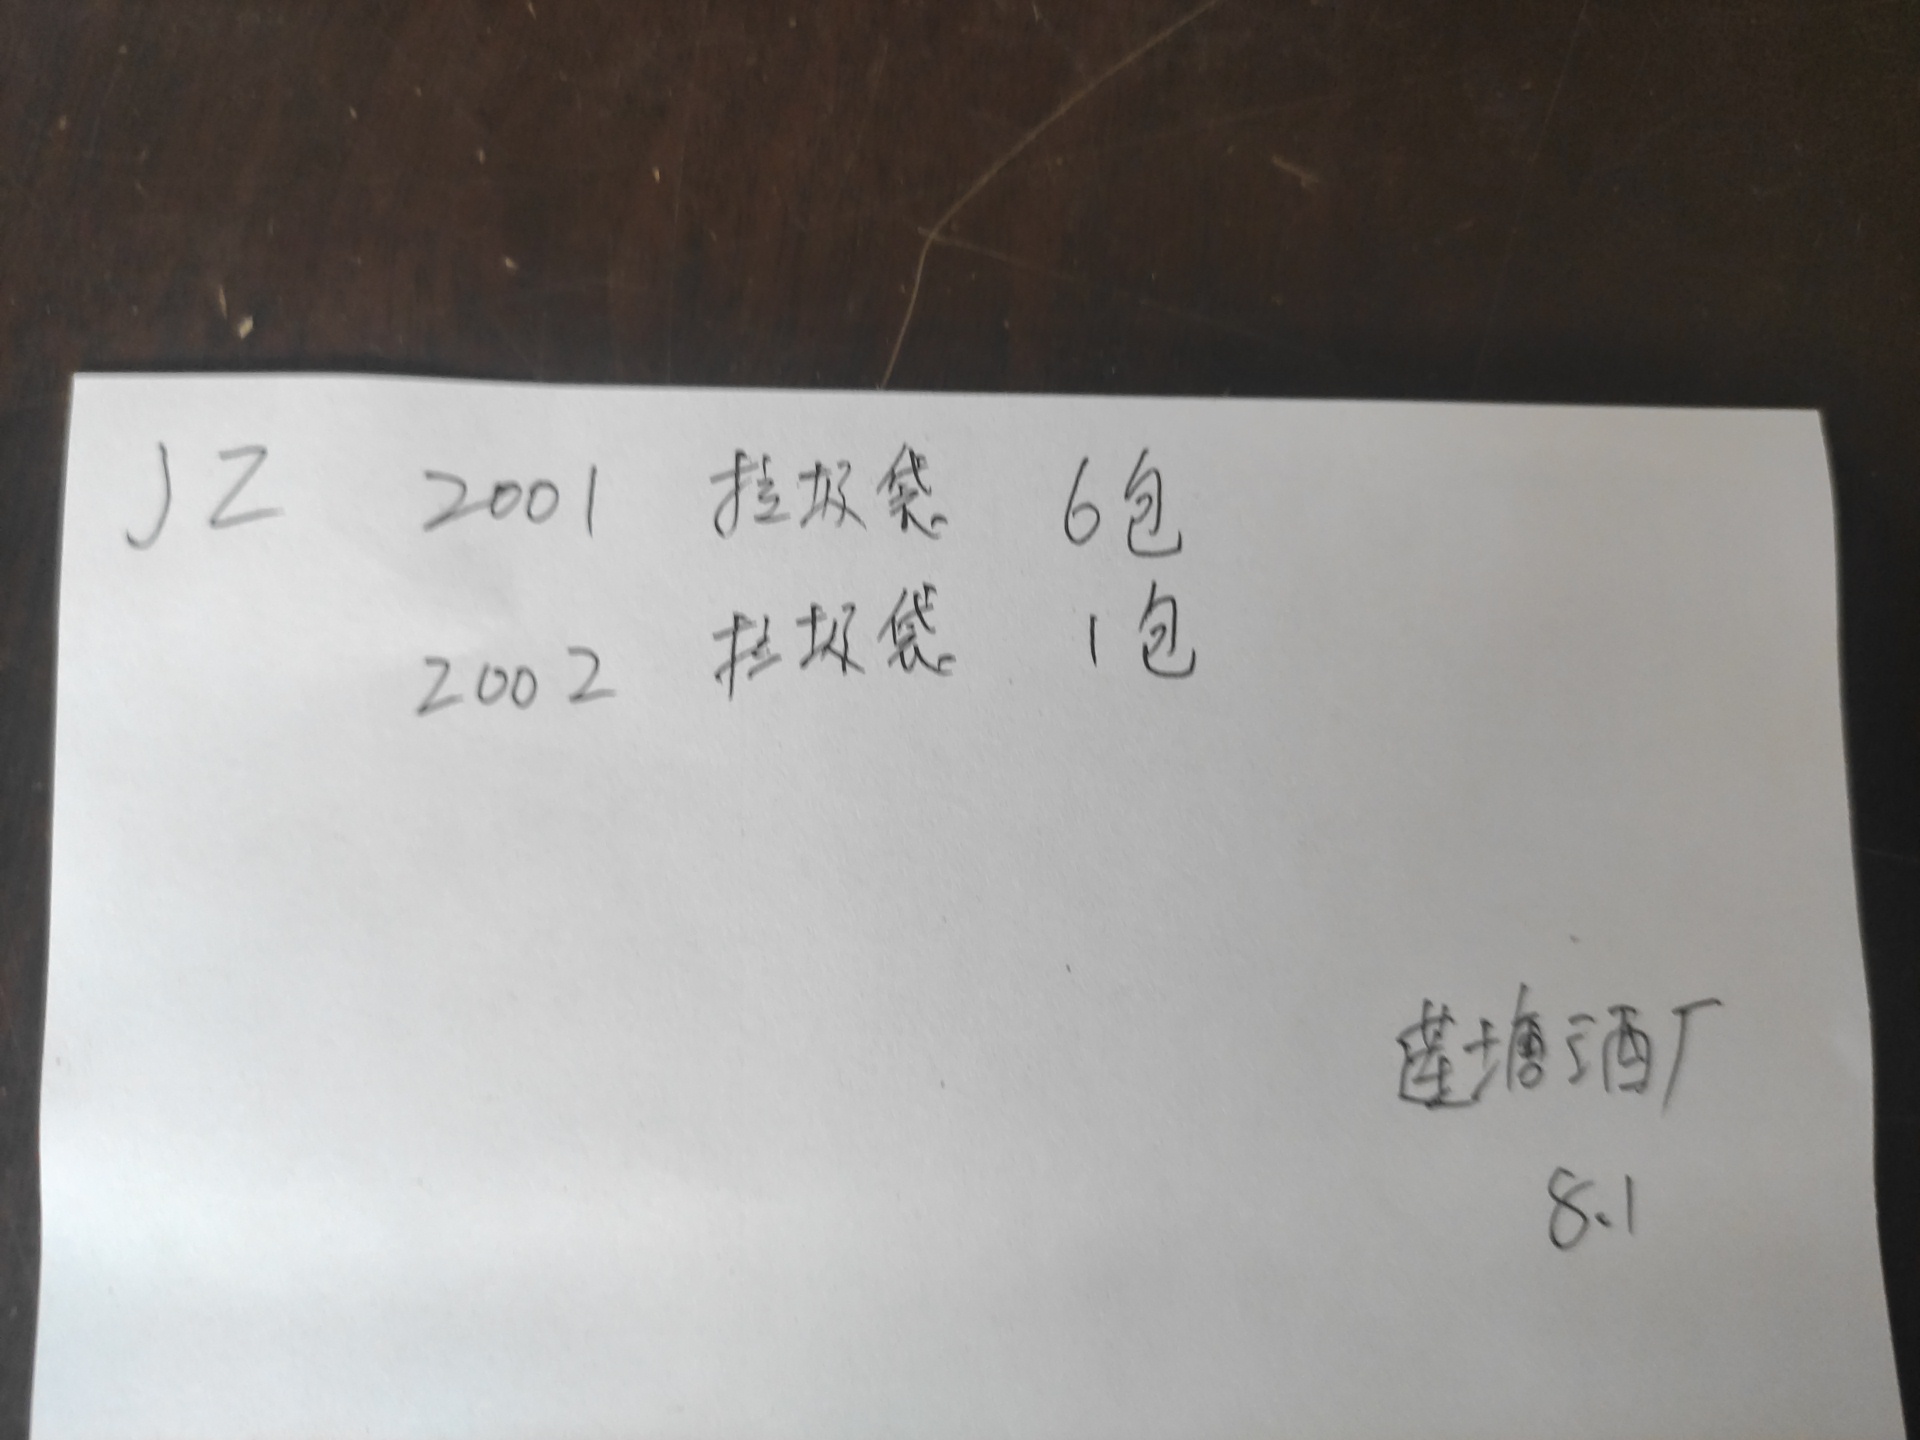 JZ 2001 垃圾袋 6包
2002 垃圾袋 1包
莲塘酒厂
8.1